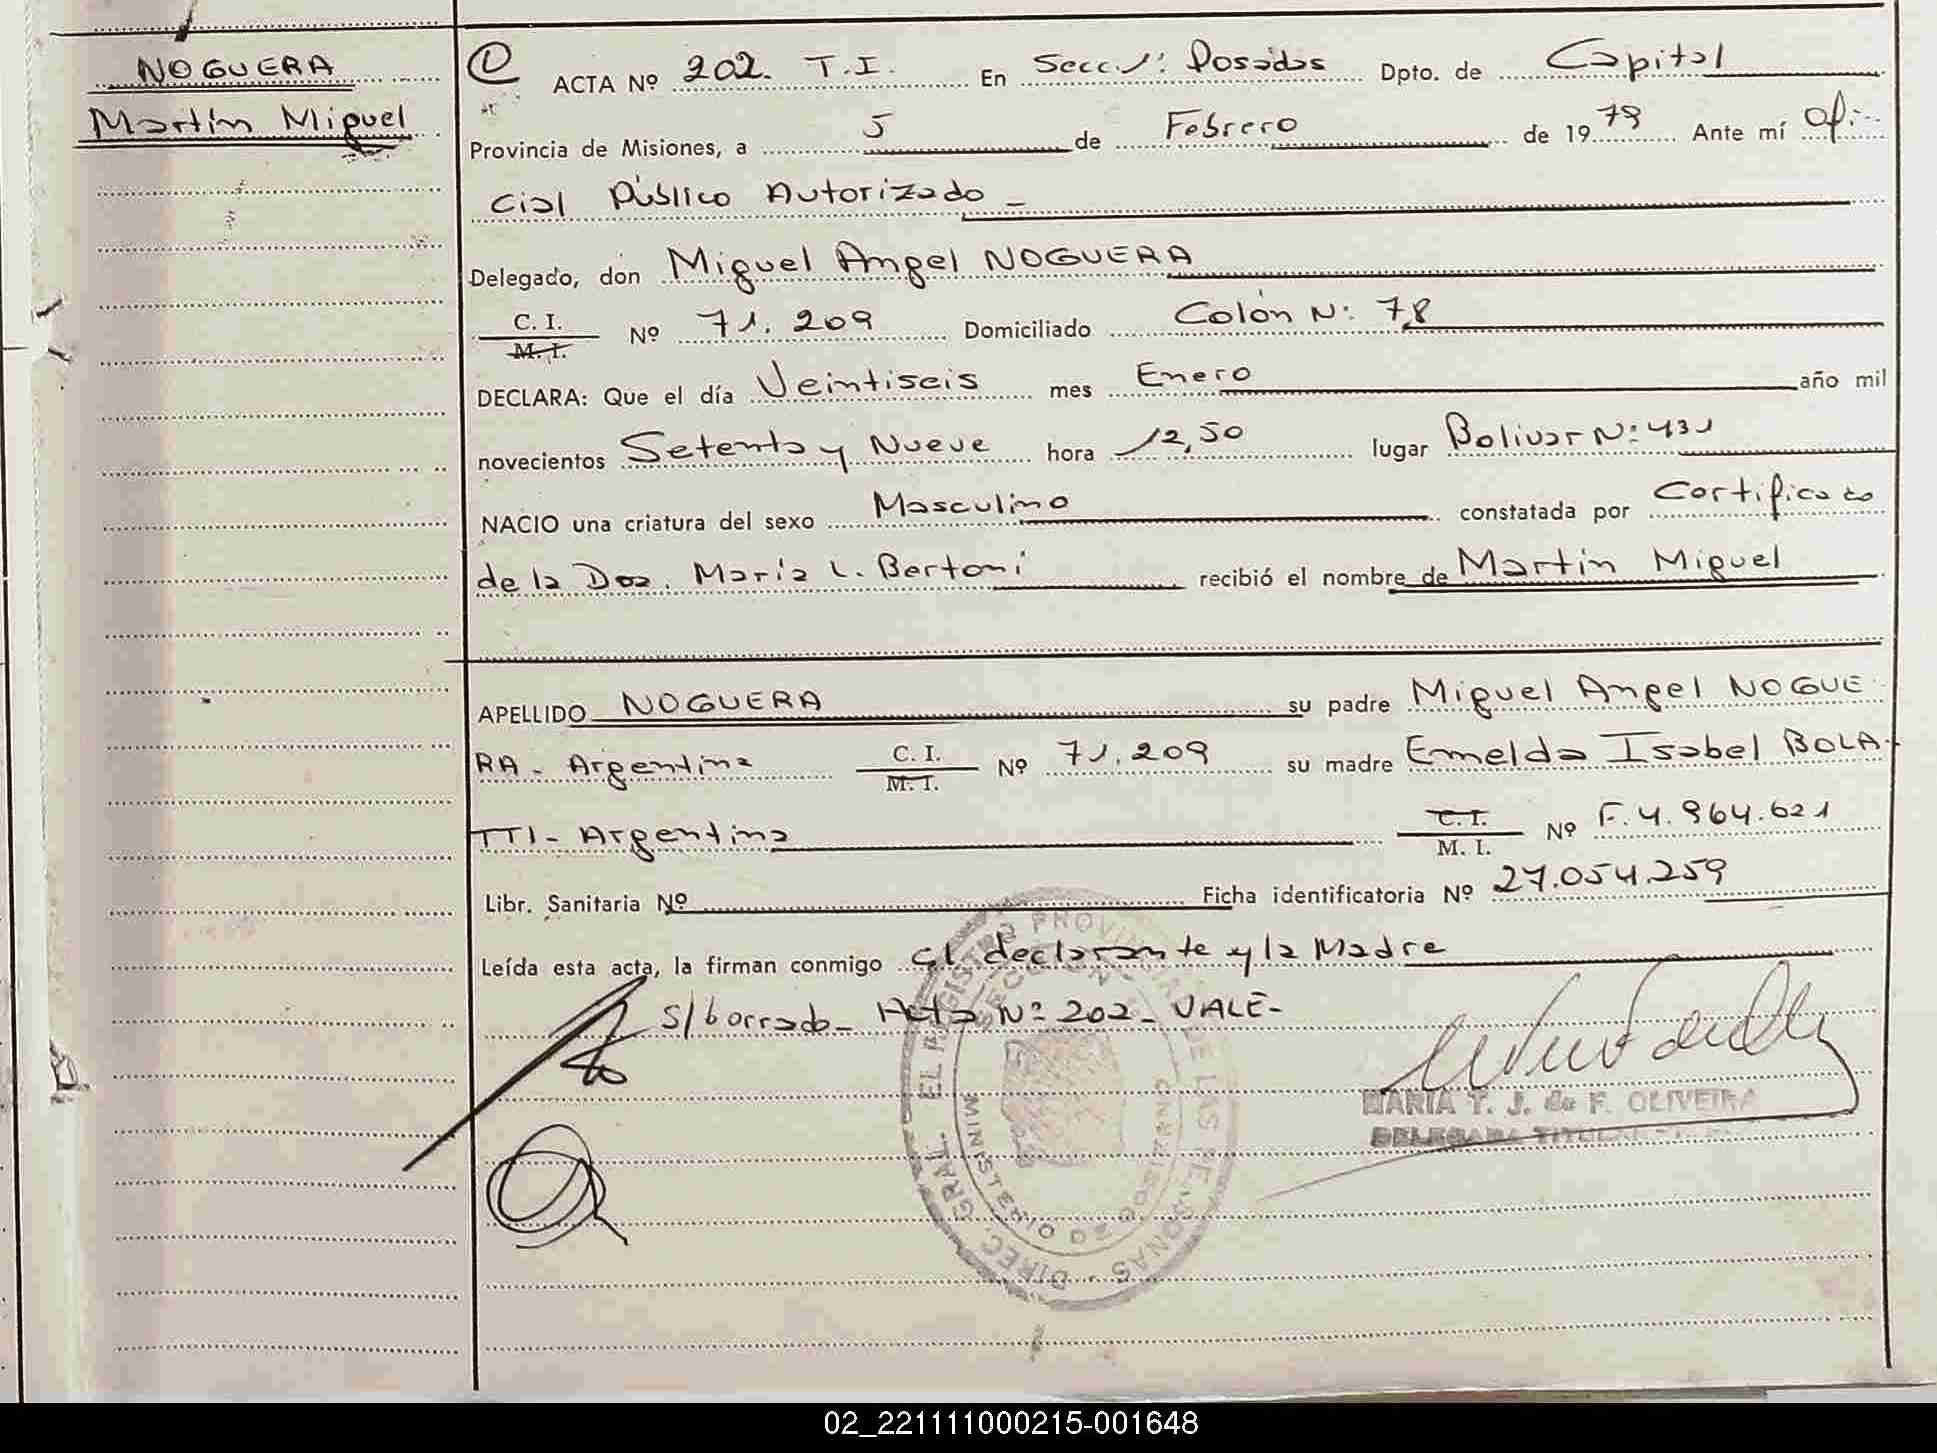 NOGUERA
Martín Miguel
ACTA Nº 202. T.I. En Secc. 1ª: Posadas Dpto. de Capital
Provincia de Misiones, a 5 de Febrero de 1979 Ante mí Ofi-
cial Público Autorizado -
Delegado, don Miguel Angel NOGUERA
C. I. M. I. Nº 71.209 Domiciliado Colón Nº 78
DECLARA: Que el día Veintiseis mes Enero año mil
novecientos Setenta y Nueve hora 12,50 lugar Bolivar Nº 431
NACIO una criatura del sexo Masculino constatada por Certificado
de la Dra. María L. Bertoni recibió el nombre de Martín Miguel
APELLIDO NOGUERA su padre Miguel Angel NOGUE
RA - Argentina C. I. M. I. Nº 71.209 su madre Emelda Isabel BOLA-
TTI - Argentina C. I. M. I. Nº F. 4.964.621
Libr. Sanitaria Nº Ficha identificatoria Nº 27.054.259
Leída esta acta, la firman conmigo el declarante y la Madre
S/borrado - Acta Nº 202 - VALE -
MARIA T. J. de F. OLIVEIRA
DELEGADA TITULAR
DIREC. GRAL. DEL REGISTRO PROVINCIAL DE LAS PERSONAS
MINISTERIO DE GOBIERNO
02_221111000215-001648